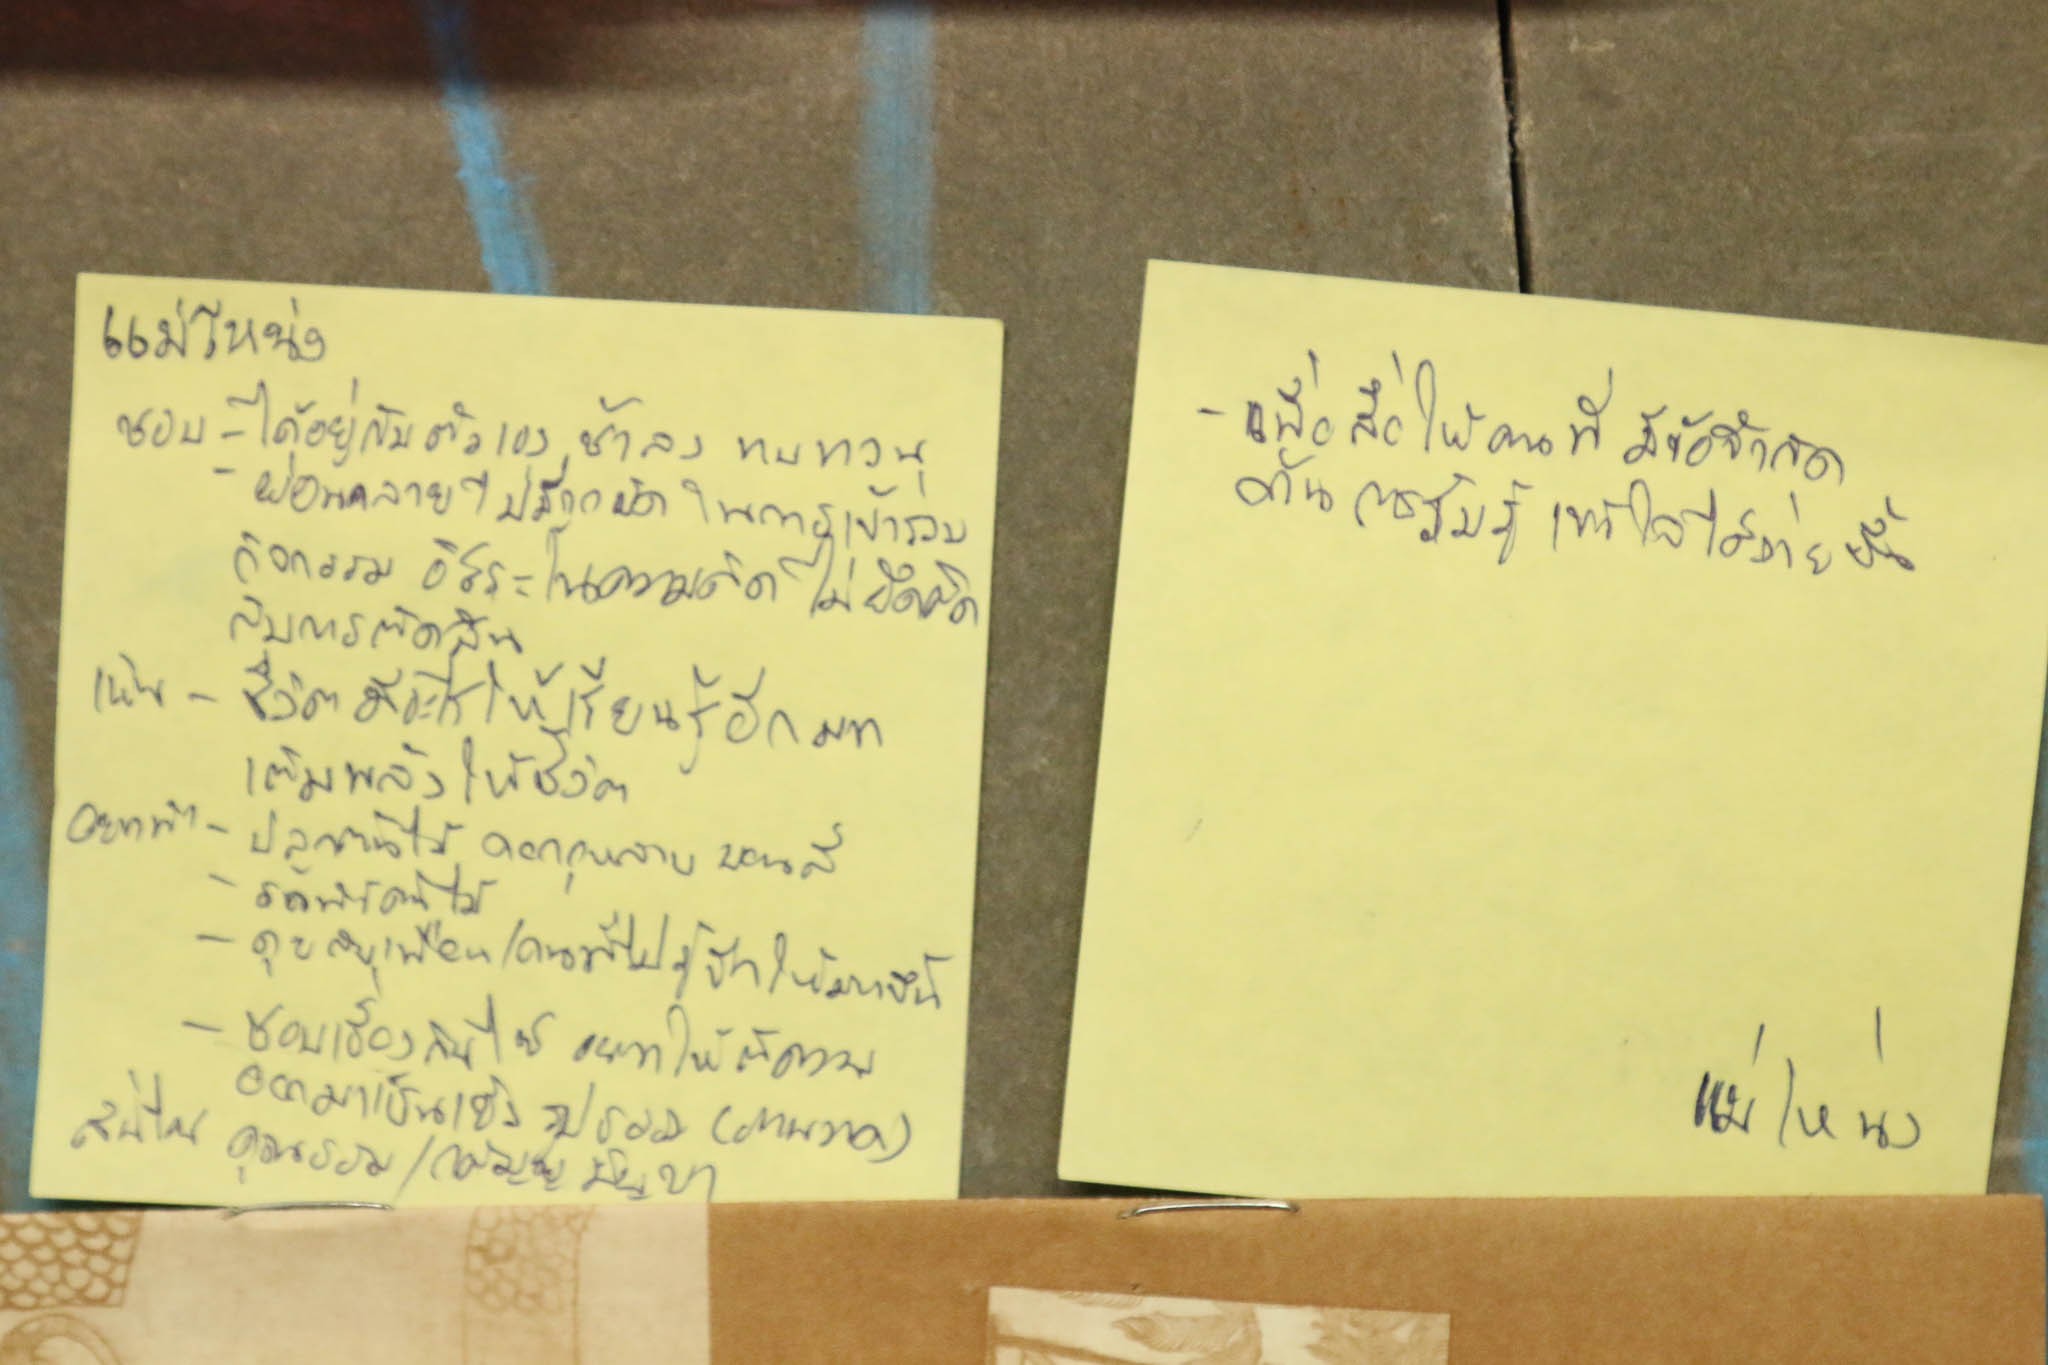 แม่โหน่ง
ชอบ - ได้อยู่กับตัวเอง ช้าลง ทบทวน
- ผ่อนคลาย ไม่มีถูกผิด ในการเข้าร่วม
กิจกรรม อิสระในความคิด ไม่ยึดติด
กับการตัดสิน
เห็น - ชีวิตมีอะไรให้เรียนรู้อีกมาก
เติมพลังให้ชีวิต
อยากทำ - ปลูกต้นไม้ ดอกกุหลาบ
- รดน้ำต้นไม้
- คุยกับเพื่อน/คนที่ไม่รู้จักให้มากขึ้น
- ชอบเรื่องเส้นไหม อยากให้ตีความ
ออกมาเป็นเชิงรูปธรรม (ภาพวาด)
สนใจ คุณธรรม/ภูมิปัญญา
- เพื่อสื่อให้คนที่มีข้อจำกัด
ด้านการรับรู้ เข้าใจได้ง่ายขึ้น
แม่โหน่ง